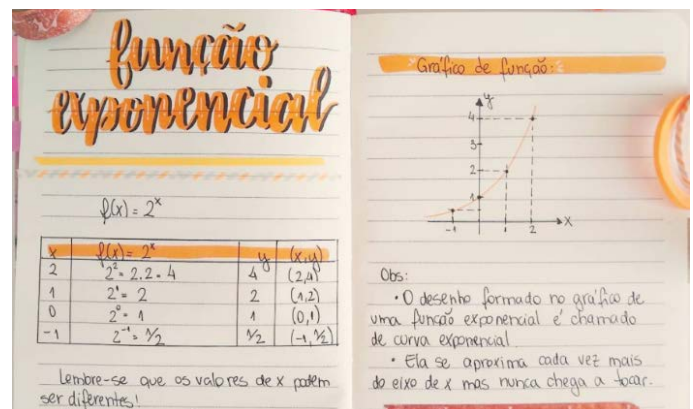 função
exponencial
f(x) = 2^x
x f(x) = 2^x y (x,y)
2 2² = 2.2 = 4 4 (2,4)
1 2¹ = 2 2 (1,2)
0 2⁰ = 1 1 (0,1)
-1 2⁻¹ = 1/2 1/2 (-1,1/2)
Lembre-se que os valores de x podem
ser diferentes!
Gráfico de função:
y
4
3
2
1
-1 1 2 x
Obs:
• O desenho formado no gráfico de
uma função exponencial é chamado
de curva exponencial
• Ela se aproxima cada vez mais
do eixo de x mas nunca chega a tocar.